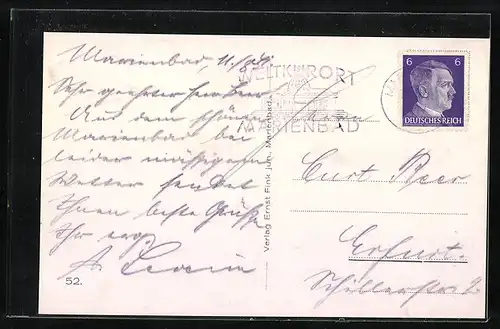 Marienbad, 11/8 41
WELTKURORT
MARIENBAD
6 6
DEUTSCHES REICH
Sehr geehrter Herr
Aus dem schönen
Marienbad bei
leider mässigem
Wetter sendet
Ihnen beste Grüße
Ihr erg.
Herrn
Curt Beer
Erfurt.
Schillerstr.
Verlag Ernst Fink jun., Marienbad.
52.